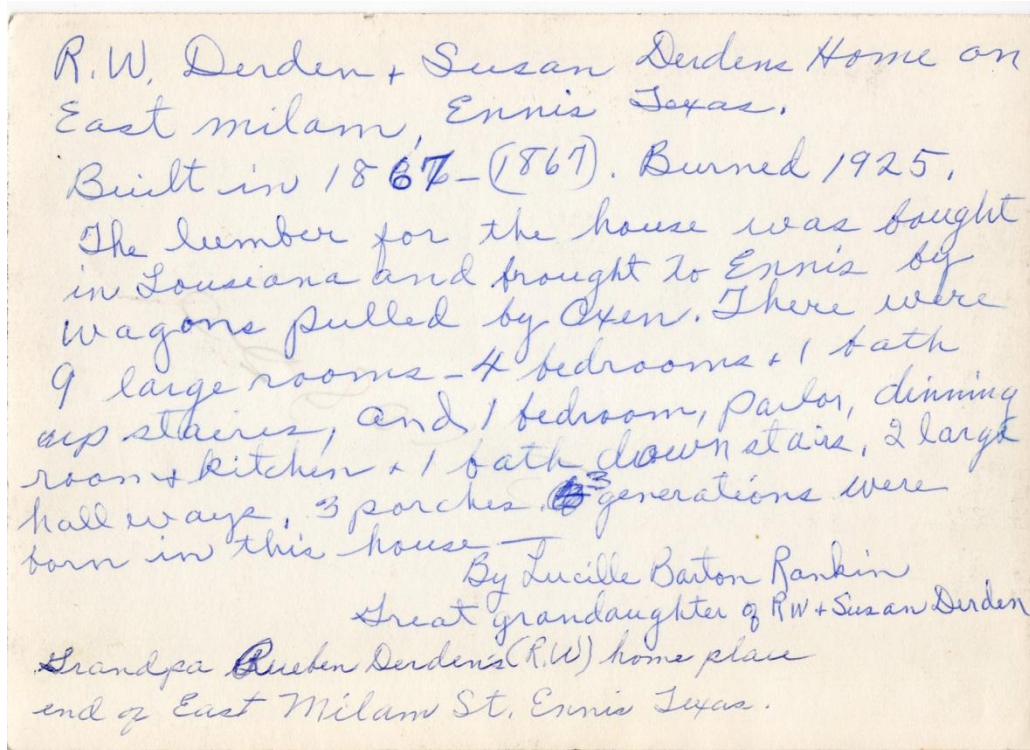 R.W. Derden + Susan Derdens Home on
East milam, Ennis Texas.
Built in 1867 - (1867). Burned 1925.
The lumber for the house was bought
in Lousiana and brought to Ennis by
wagons pulled by Oxen. There were
9 large rooms - 4 bedrooms + 1 bath
up staires, and 1 bedroom, parlor, dinning
room + kitchen + 1 bath down stairs, 2 large
hall ways, 3 porches. 3 generations were
born in this house —
By Lucille Barton Rankin
Great grandaughter of RW + Susan Derden
Grandpa Rueben Derden's (R.W) home place
end of East Milam St. Ennis Texas.